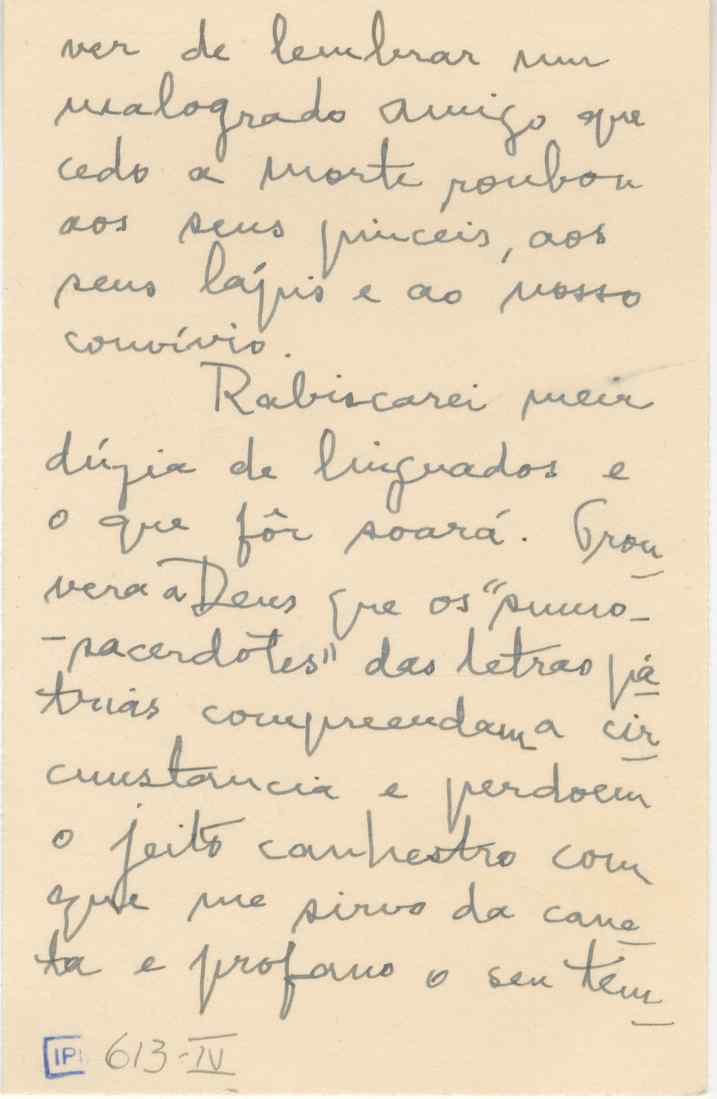 ver de lembrar um
malogrado amigo que
cedo a morte roubou
aos seus pinceis, aos
seus lápis e ao nosso
convívio.
Rabiscarei meia
dúzia de linguados e
o que fôr soará. Prou
vera a Deus que os "sumo-
-sacerdotes" das letras pá
trias compreendam a cir
cunstancia e perdoem
o jeito canhestro com
que me sirvo da cane
ta e profano o seu têm
IP 613-IV